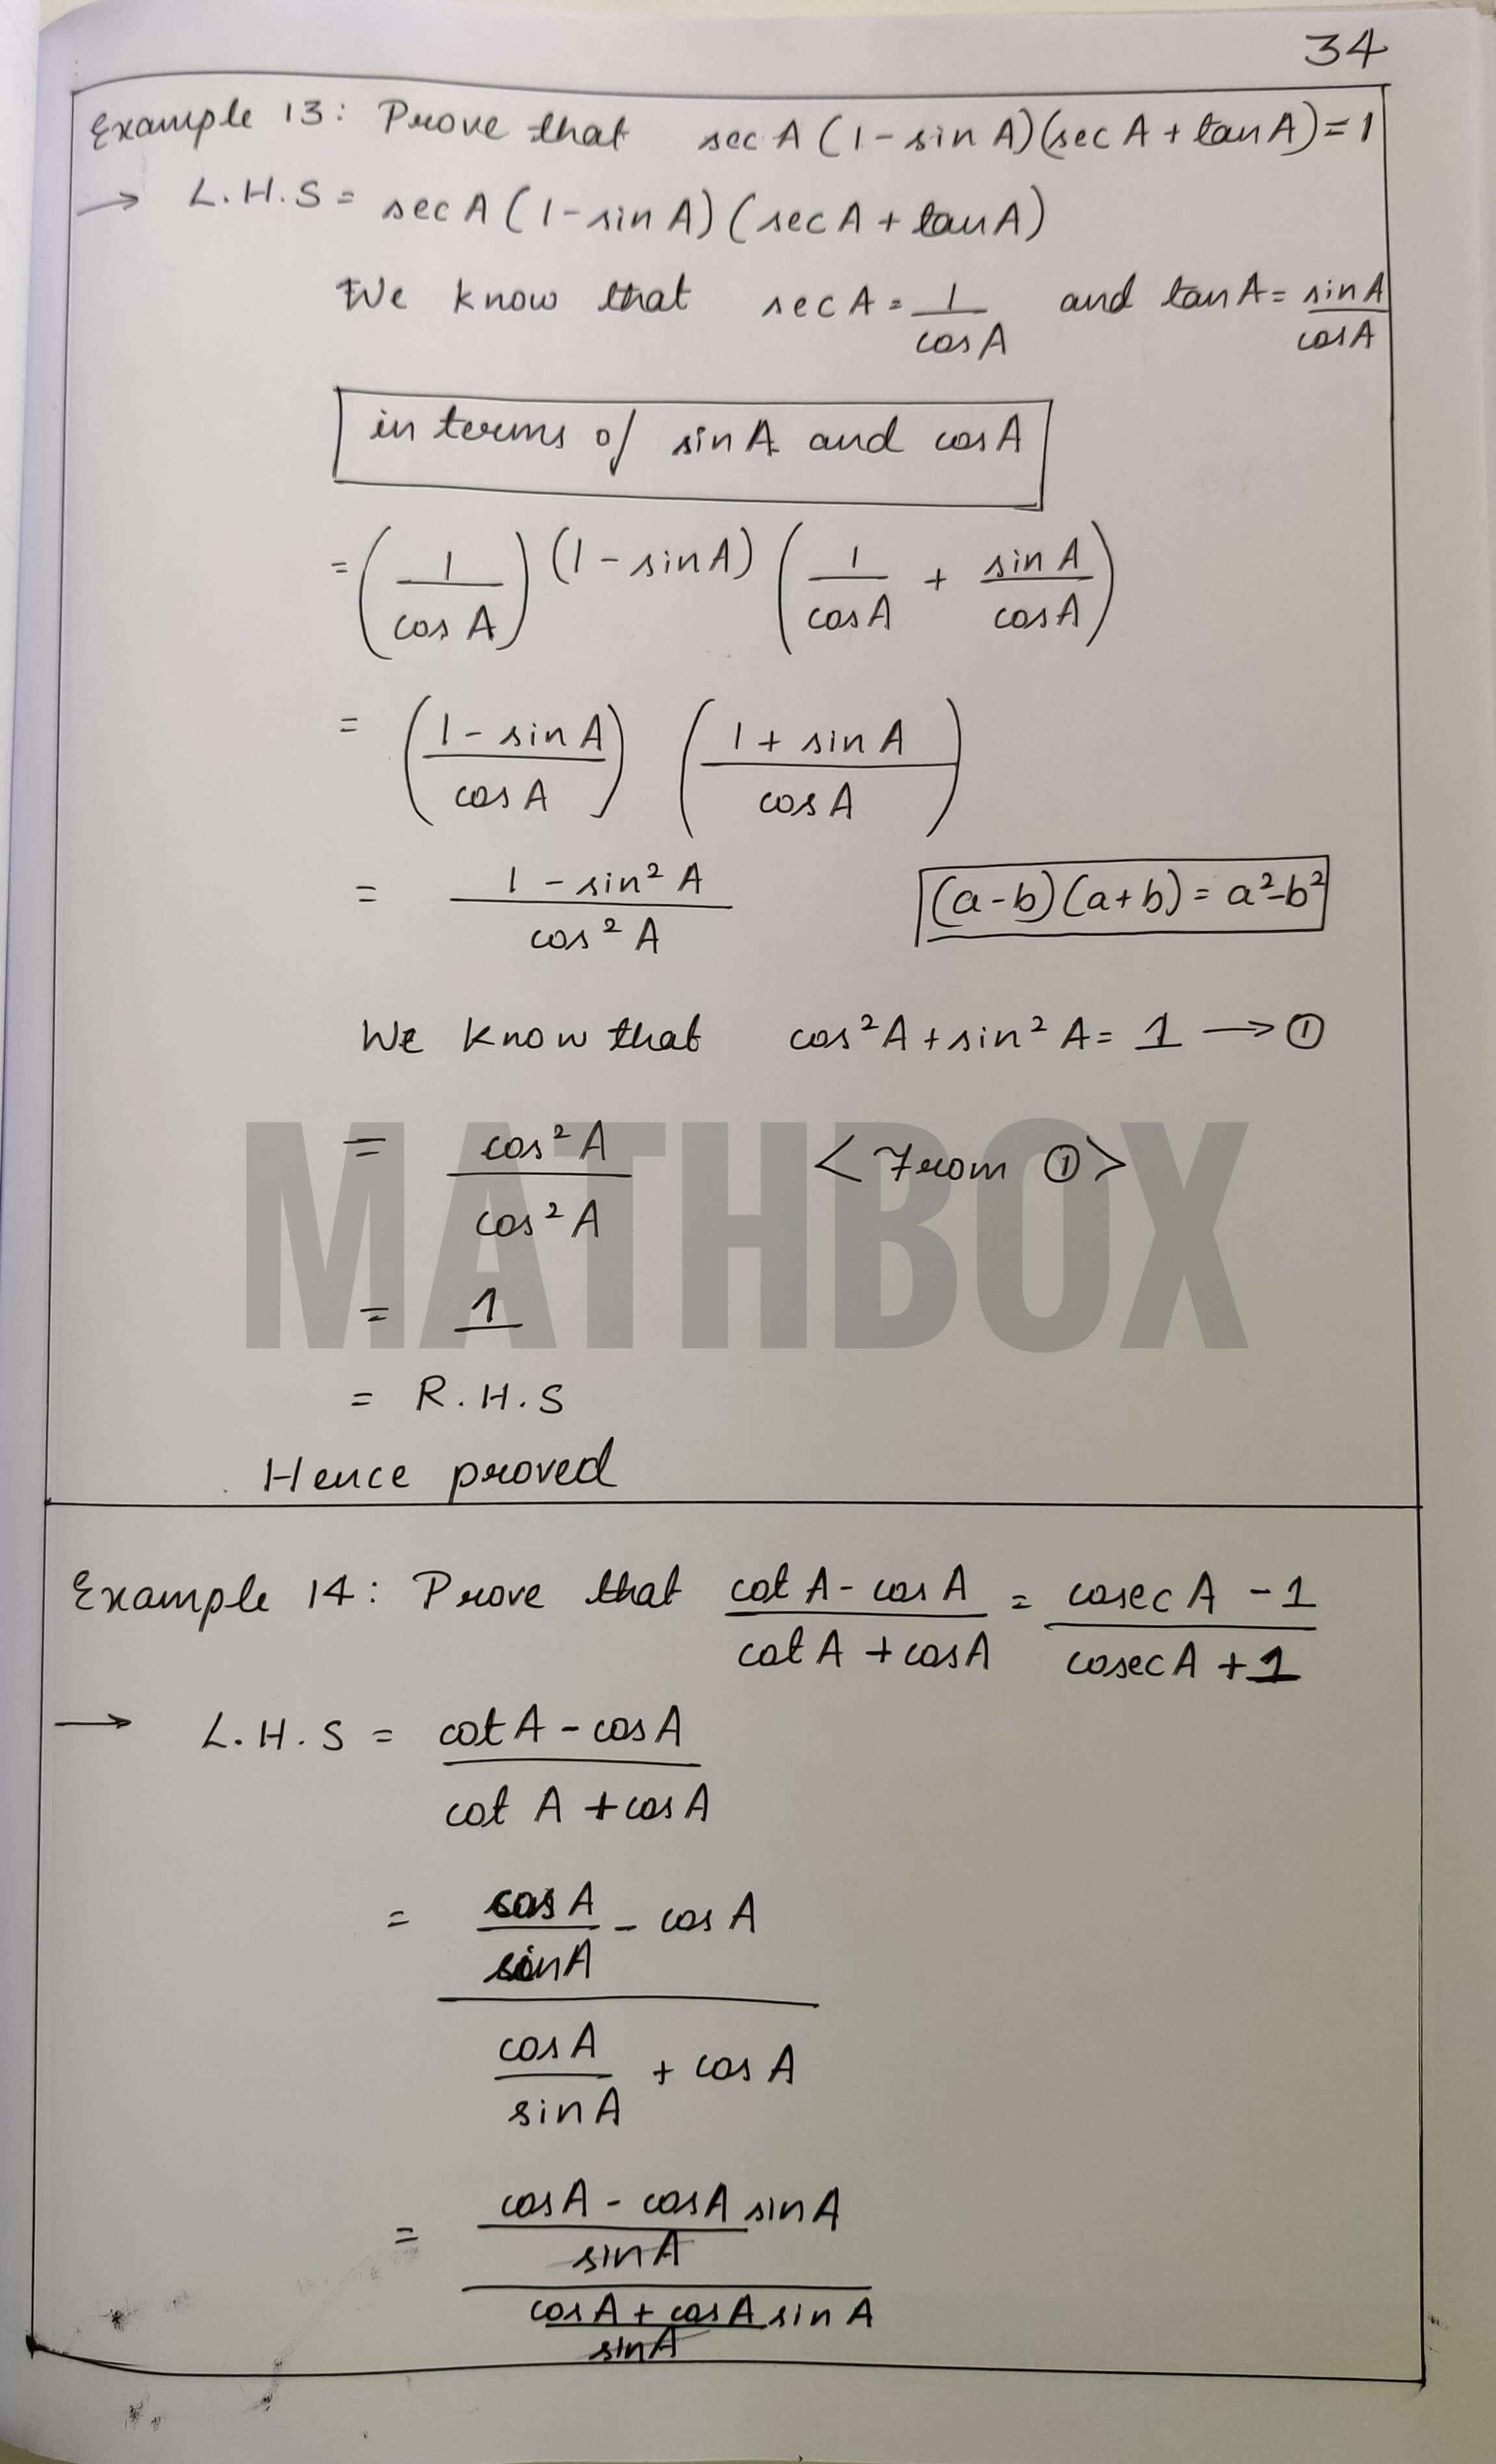 34
Example 13: Prove that sec A (1 - sin A)(sec A + tan A) = 1
→ L.H.S = sec A (1 - sin A) (sec A + tan A)
We know that sec A = 1/cos A and tan A = sin A/cos A
in terms of sin A and cos A
= (1/cos A) (1 - sin A) (1/cos A + sin A/cos A)
= (1 - sin A/cos A) (1 + sin A/cos A)
= 1 - sin² A/cos² A (a - b)(a + b) = a² - b²
We know that cos² A + sin² A = 1 → ①
= cos² A/cos² A < From ① >
= 1
= R.H.S
Hence proved
MATHBOX
Example 14: Prove that cot A - cos A/cot A + cos A = cosec A - 1/cosec A + 1
→ L.H.S = cot A - cos A/cot A + cos A
= cos A/sin A - cos A
cos A/sin A + cos A
= cos A - cos A sin A/sin A
cos A + cos A sin A/sin A